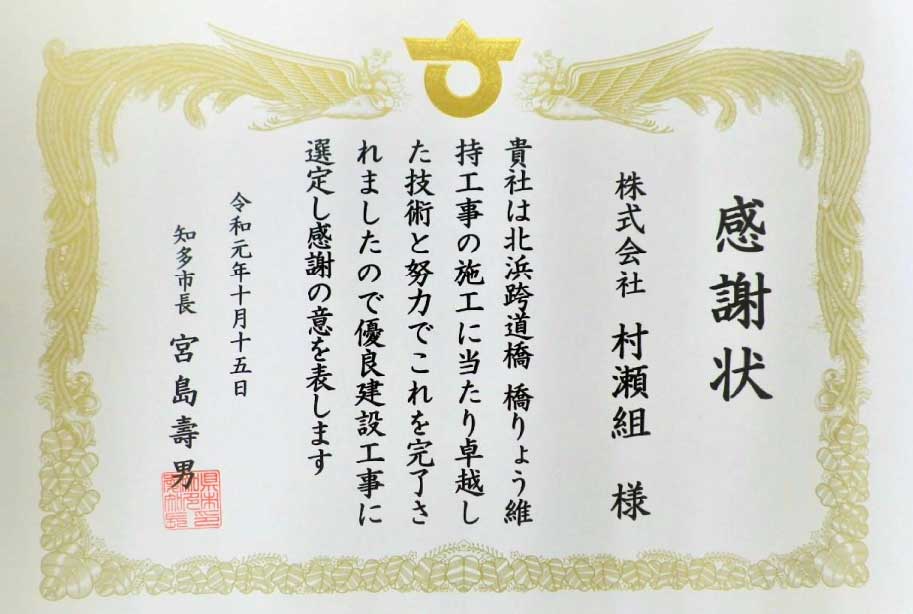 感謝状
株式会社 村瀬組 様
貴社は北浜跨道橋 橋りょう維
持工事の施工に当たり卓越し
た技術と努力でこれを完了さ
れましたので優良建設工事に
選定し感謝の意を表します
令和元年十月十五日
知多市長 宮島壽男